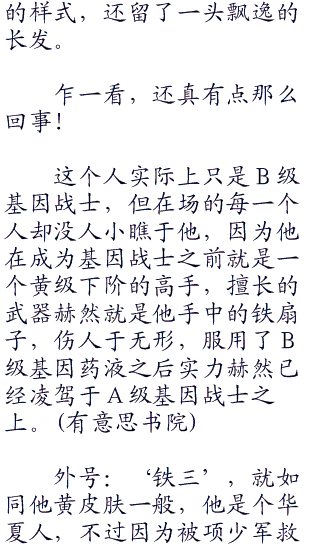 的样式，还留了一头飘逸的
长发。
乍一看，还真有点那么
回事！
这个人实际上只是B级
基因战士，但在场的每一个
人却没人小瞧于他，因为他
在成为基因战士之前就是一
个黄级下阶的高手，擅长的
武器赫然就是他手中的铁扇
子，伤人于无形，服用了B
级基因药液之后实力赫然已
经凌驾于A级基因战士之
上。(有意思书院)
外号：‘铁三’，就如
同他黄皮肤一般，他是个华
夏人，不过因为被项少军救